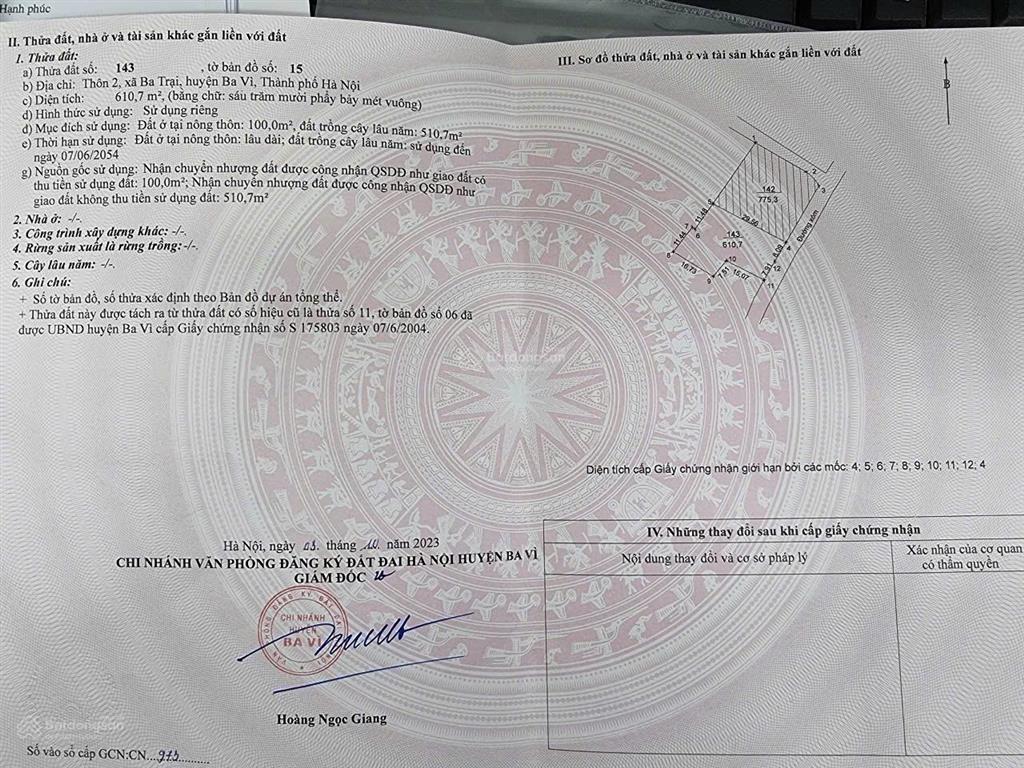 Hạnh phúc
II. Thửa đất, nhà ở và tài sản khác gắn liền với đất
1. Thửa đất:
a) Thửa đất số: 143 , tờ bản đồ số: 15
b) Địa chỉ: Thôn 2, xã Ba Trại, huyện Ba Vì, Thành phố Hà Nội
c) Diện tích: 610,7 m², (bằng chữ: sáu trăm mười phẩy bảy mét vuông)
d) Hình thức sử dụng: Sử dụng riêng
đ) Mục đích sử dụng: Đất ở tại nông thôn: 100,0m², đất trồng cây lâu năm: 510,7m²
e) Thời hạn sử dụng: Đất ở tại nông thôn: lâu dài; đất trồng cây lâu năm: sử dụng đến
ngày 07/06/2054
g) Nguồn gốc sử dụng: Nhận chuyển nhượng đất được công nhận QSDĐ như giao đất có
thu tiền sử dụng đất: 100,0m²; Nhận chuyển nhượng đất được công nhận QSDĐ như
giao đất không thu tiền sử dụng đất: 510,7m²
2. Nhà ở: -/-.
3. Công trình xây dựng khác: -/-.
4. Rừng sản xuất là rừng trồng:-/-.
5. Cây lâu năm: -/-.
6. Ghi chú:
+ Số tờ bản đồ, số thửa xác định theo Bản đồ dự án tổng thể.
+ Thửa đất này được tách ra từ thửa đất có số hiệu cũ là thửa số 11, tờ bản đồ số 06 đã
được UBND huyện Ba Vì cấp Giấy chứng nhận số S 175803 ngày 07/6/2004.
Hà Nội, ngày 03 tháng 10 năm 2023
CHI NHÁNH VĂN PHÒNG ĐĂNG KÝ ĐẤT ĐAI HÀ NỘI HUYỆN BA VÌ
GIÁM ĐỐC
VĂN PHÒNG ĐĂNG KÝ ĐẤT ĐAI HÀ NỘI
CHI NHÁNH
HUYỆN
BA VÌ
Hoàng Ngọc Giang
Batdongsan
Số vào sổ cấp GCN:CN....973..........
III. Sơ đồ thửa đất, nhà ở và tài sản khác gắn liền với đất
B
1
2
3
142
775,3
5
11.48
29.56
4
Đường xóm
7
6
11.44
143
610,7
8.09
8
10
12
16.73
7.51
15.07
7.91
9
11
Batdongsan
Diện tích cấp Giấy chứng nhận giới hạn bởi các mốc: 4; 5; 6; 7; 8; 9; 10; 11; 12; 4
IV. Những thay đổi sau khi cấp giấy chứng nhận
Nội dung thay đổi và cơ sở pháp lý
Xác nhận của cơ quan
có thẩm quyền